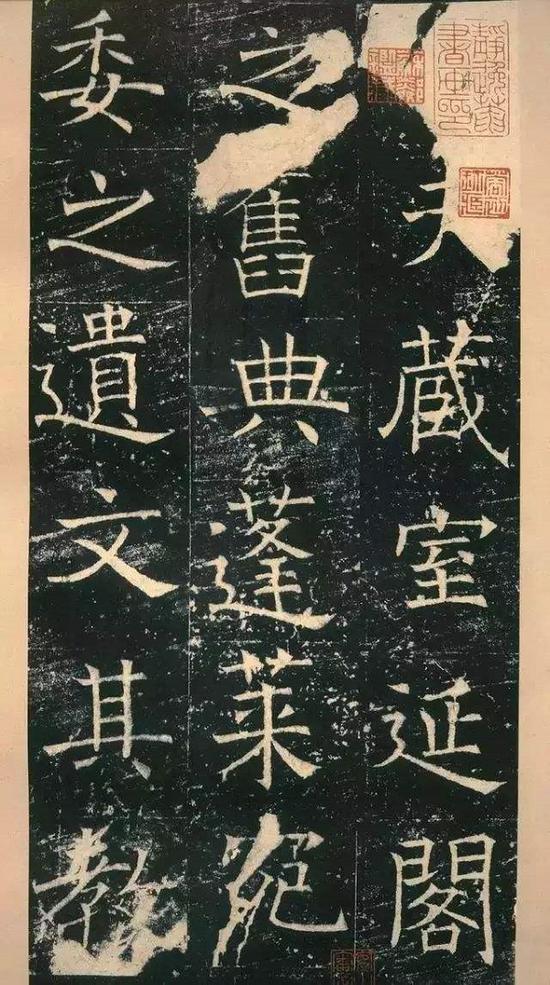 夫蔵室延閣
之舊典蓬萊宛
委之遺文其教